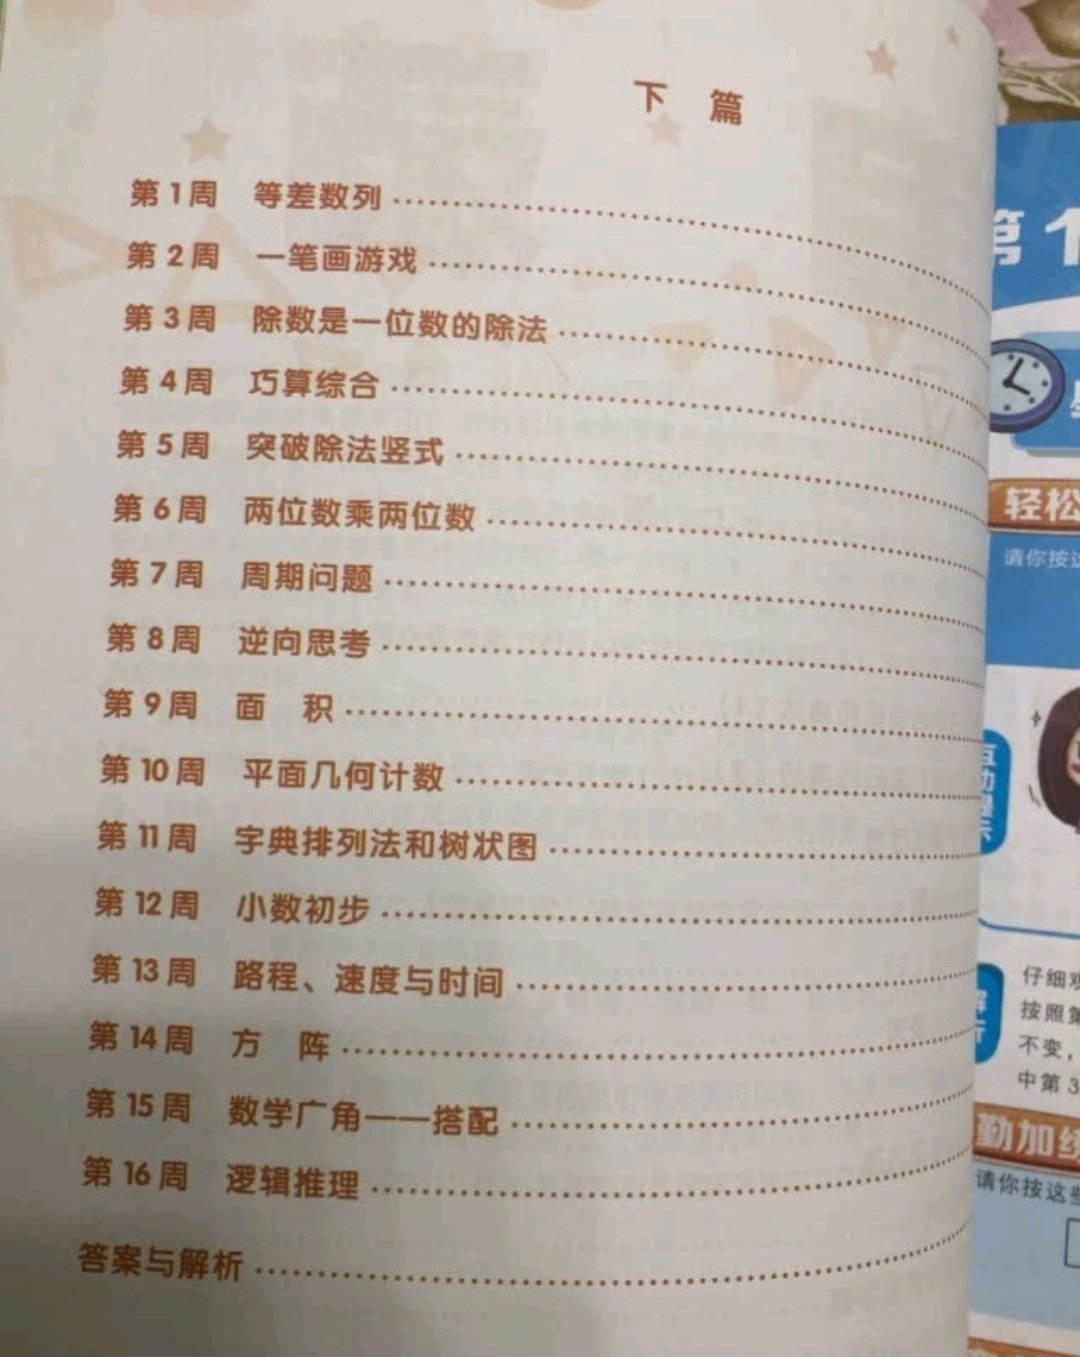 下 篇
第1周 等差数列
第2周 一笔画游戏
第3周 除数是一位数的除法
第4周 巧算综合
第5周 突破除法竖式
第6周 两位数乘两位数
第7周 周期问题
第8周 逆向思考
第9周 面 积
第10周 平面几何计数
第11周 字典排列法和树状图
第12周 小数初步
第13周 路程、速度与时间
第14周 方 阵
第15周 数学广角——搭配
第16周 逻辑推理
答案与解析
第1
轻松
请你按这
仔细观
按照第
不变，
中第3
勤加练
请你按这些